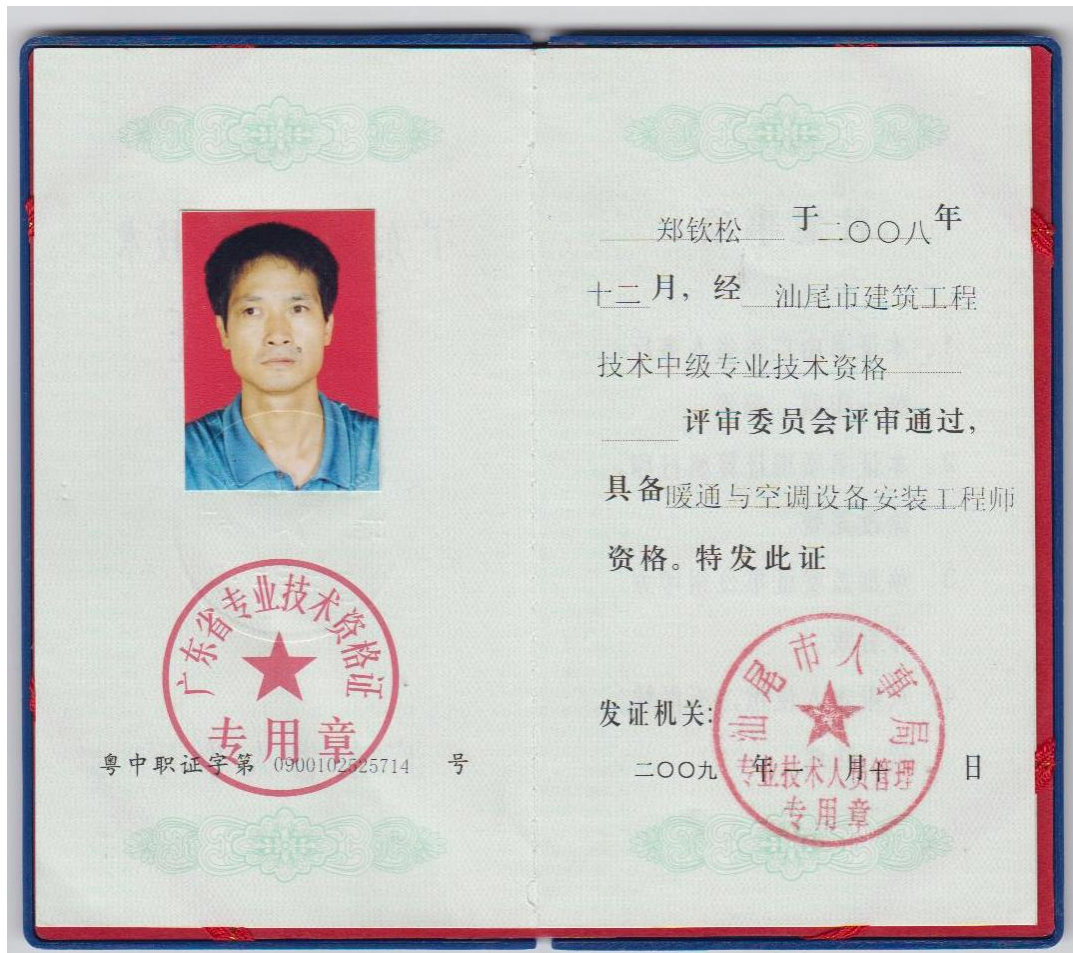 广东省专业技术资格证
专用章
粤中职证字第 0900102525714 号
郑钦松 于二〇〇八年
十二月，经 汕尾市建筑工程
技术中级专业技术资格
评审委员会评审通过，
具备暖通与空调设备安装工程师
资格。特发此证
汕尾市人事局
发证机关：
二〇〇九 年一 月十 日
专业技术人员管理
专用章